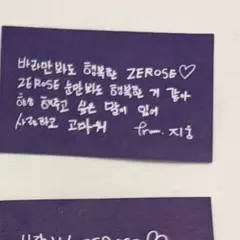 바라만 봐도 행복한 ZEROSE♡
ZEROSE 눈만 봐도 행복한 거 같아
항상 해주고 싶은 말이 있어
사랑하고 고마워 from. 지웅
ZEROSE♡